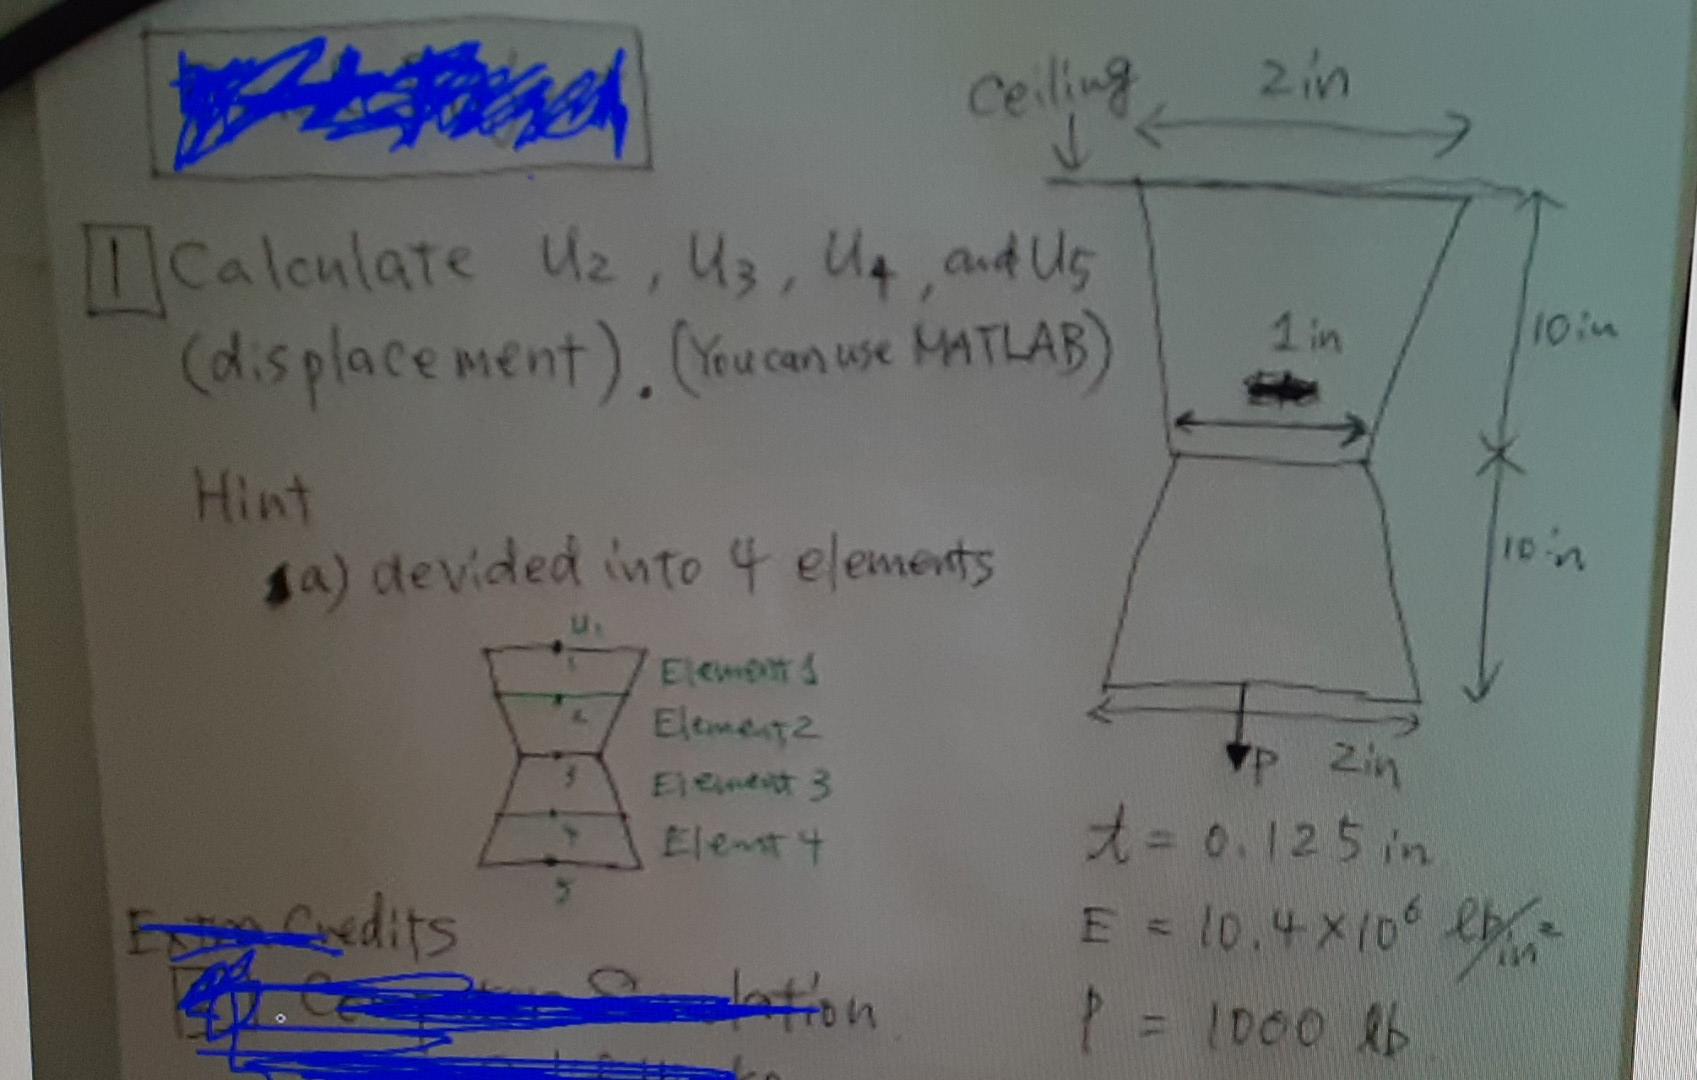 Ceiling
2 in
1 Calculate U2, U3, U4, and U5
(displacement). (You can use MATLAB)
1 in
10 in
Hint
a) devided into 4 elements
10 in
U1
1
Element 1
2
Element 2
3
Element 3
4
Elemt 4
5
P
2in
t = 0.125 in
E = 10.4 × 10⁶ lb/in²
P = 1000 lb
Credits